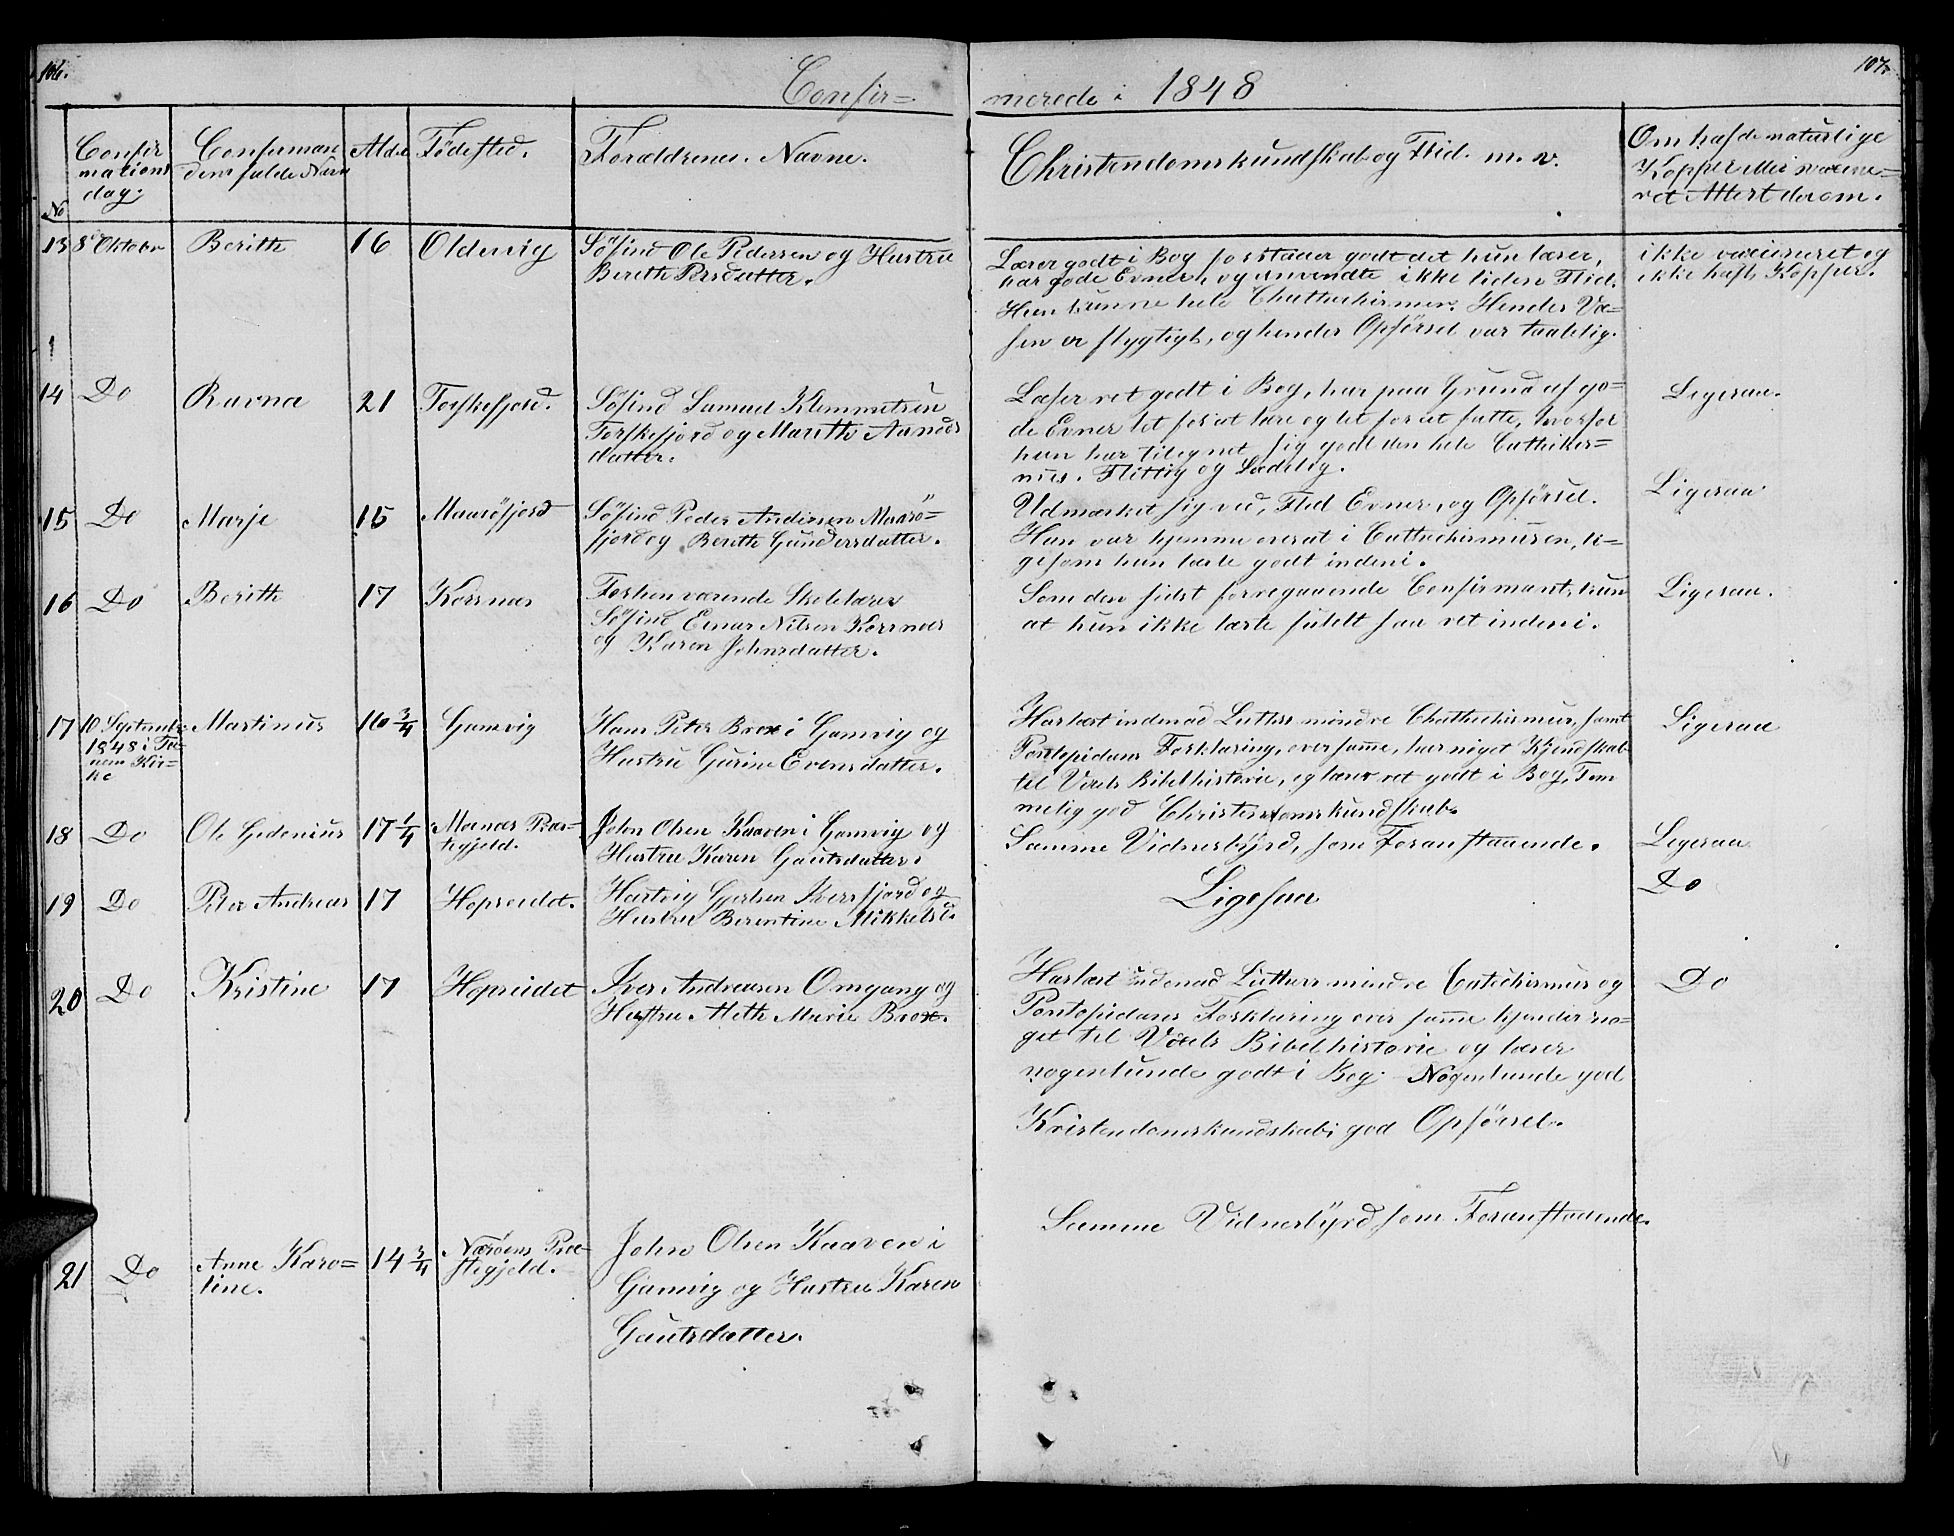 106.
107.
Confir=
merede i 1848
No
Confir
mations
dag.
Confirman
dens fulde Navn
Alder
Födested.
Forældrenes Navne.
Christendomskundskab og Flid m. v.
Om hafde naturlige
Kopper eller vaccine=
ret Attest derom.
13
8de Oktober
Berith
16
Oldervig
Söfind Ole Pedersen og Hustru
Berith Persdatter.
Læser godt i Bog forstaaer godt det hun læser,
har gode Evner, og anvendte ikke liden Flid.
Hun kunne hele Chattechismen. Hendes Væ=
sen er flygtigt, og hendes Opförsel var taalelig.
ikke vaccineret og
ikke haft Kopper.
14
Do
Ravna
21
Torskefjord.
Söfind Samuel Klemmetsen
Torskefjord og Marith Aanders
datter.
Læser ret godt i Bog, har paa Grund af go=
de Evner let for at lære og let for at fatte, hvorfor
hun har tilegnet sig godt den hele Cathikis=
mus. Flittig og Sædelig.
Ligesaa.
15
Do
Marje
15
Maaröfjord
Söfind Peder Andersen Maarö=
fjord og Berith Gundersdatter.
Udmærket sig ved, Flid Evner, og Opførsel.
Hun var hjemme overalt i Cattechismusen, li=
gesom hun læste godt indeni.
Ligesaa
16
Do
Berith
17
Korsnæs
Forhenværende Skolelærer
Söfind Einar Nilsen Korsnæs
og Karen Johnsdatter.
Som den sidst foregaaende Confirmant, kun
at hun ikke læste fuldt saa ret indeni.
Ligesaa.
17
10 Septembr
1848 i Ta=
nem Kir=
ke
Martinus
16 3/4
Gamvig
Hans Peter Brox i Gamvig og
Hustru Gurine Evensdatter.
Har læst indenad Luthers mindre Chattechismus, samt
Pontopidans Forklaring, over samme, har noget Kjendskab
til Vogts Bibelhistorie, og læser ret godt i Bog, Tem
melig god Christendomskundskab.
Ligesaa
18
Do
Ole Gedenius
17 1/4
Præ=
stegjeld.
John Olsen Kaaven i Gamvig og
Hustru Karen Gautsdatter.
Samme Vidnesbyrd, som Foranstaaende.
Ligesaa
19
Do
Peter Andreas
17
Hopseidet.
Hartvig Gjertsen Iversfjord og
Hustru Berentine Mikkelsd.
Ligesaa
Do
20
Do
Kristine
17
Hopseidet
Iver Andreasen Omgang og
Hustru Meth Marie Brox.
Har læst indenad Luthers mindre Catechismus og
Pontopidans Forklaring over samme kjender no=
get til Vogts Bibelhistorie og læser
nogenlunde godt i Bog. Nogenlunde god
Kristendomskundskab; god Opførsel.
Do
21
Do
Anne Karo=
line.
14 3/4
Næröens Præ=
stegjeld.
John Olsen Kaaven i
Gamvig og Hustru Karen
Gautsdatter.
Samme Vidnesbyrd, som Foranstaaende.